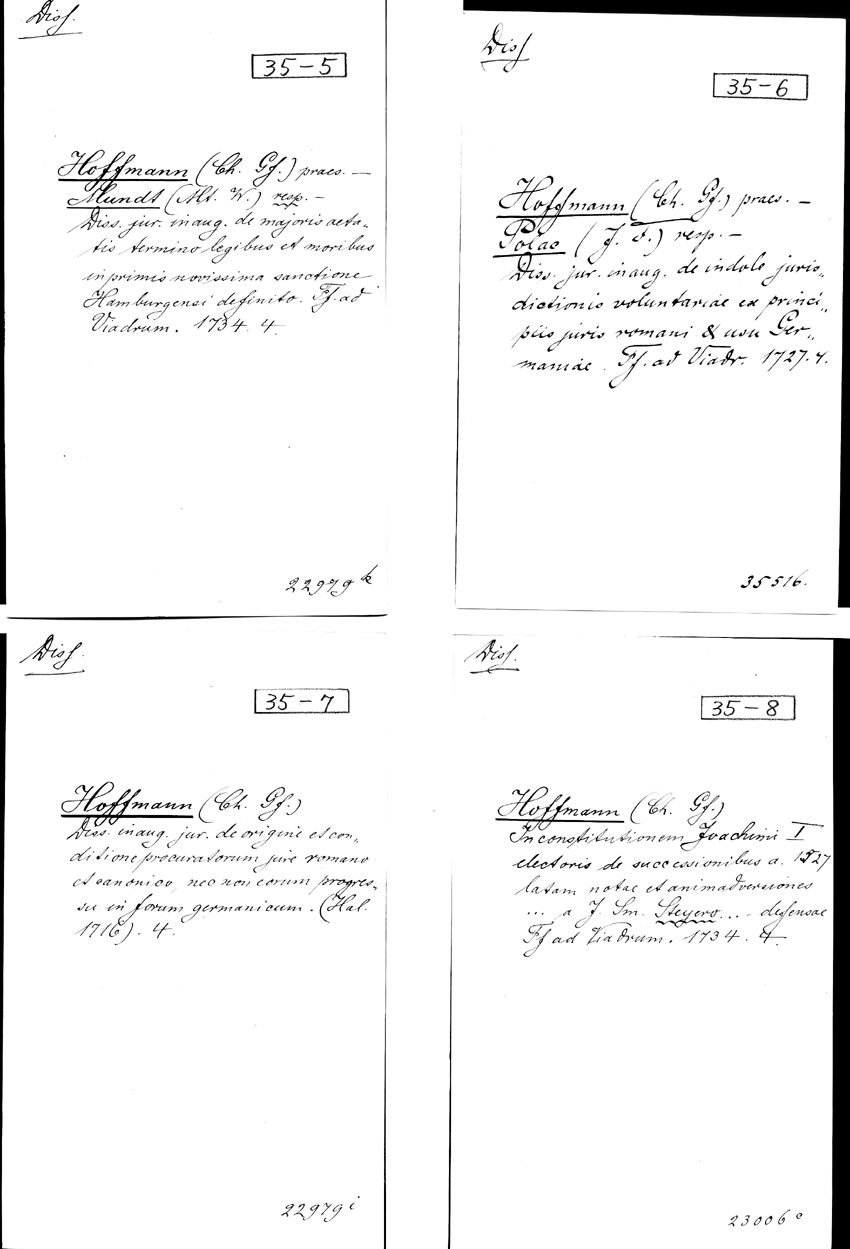 Diss.
35-5
Hoffmann (Ch. Gf.) praes. —
Mundt (Mt. W.) resp. —
Diss. jur. inaug. de majoris aeta„
tis termino legibus et moribus
inprimis novissima sanctione
Hamburgensi definito. Ff. ad
Viadrum. 1734. 4.
22979 k
Diss
35-6
Hoffmann (Ch. Gf.) praes. —
Polac (J. F.) resp. —
Diss. jur. inaug. de indole juris„
dictionis voluntariae ex princi„
piis juris romani & usu Ger„
maniae. Ff. ad Viadr. 1727. 4.
35516.
Diss.
35-7
Hoffmann (Ch. Gf.)
Diss. inaug. jur. de origine et con„
ditione procuratorum jure romano
et canonico, nec non eorum progres„
su in forum germanicum. (Hal.
1716). 4.
22979 i
Diss.
35-8
Hoffmann (Ch. Gf.)
In constitutionem Joachimi I
electoris de successionibus a. 1527
latam notae et animadversiones
... a J. Sm. Steyero ... - defensae
Ff ad Viadrum. 1734. 4.
23006 c